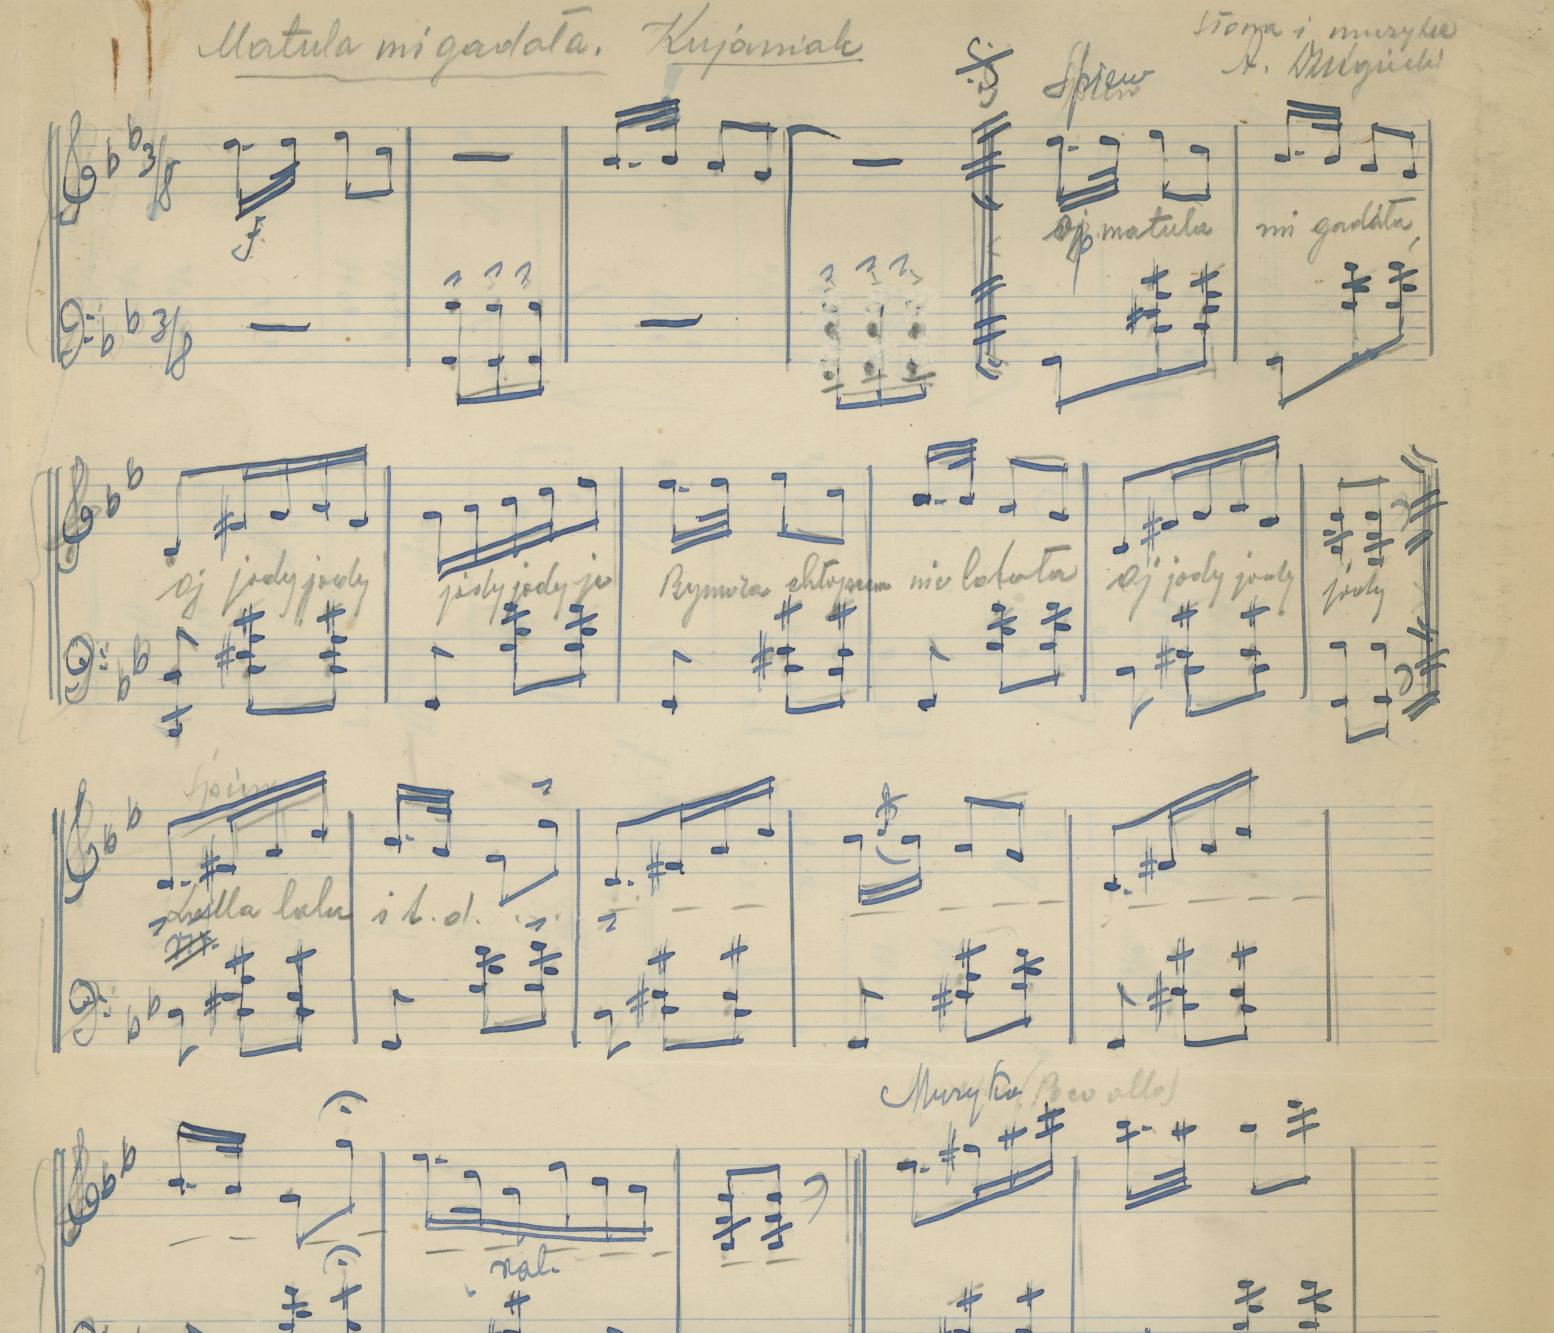 Matula mi gadała. Kujawiak
Słowa i muzyka
A.
Śpiew
3/8
f
Oj matula mi gadała,
3/8
Oj jody jody jody jody jo Rymcza chłopcem nie latała Oj jody jody jody
Śpiew
la lala i t. d.
Muzyka (Poco allo)
ral.